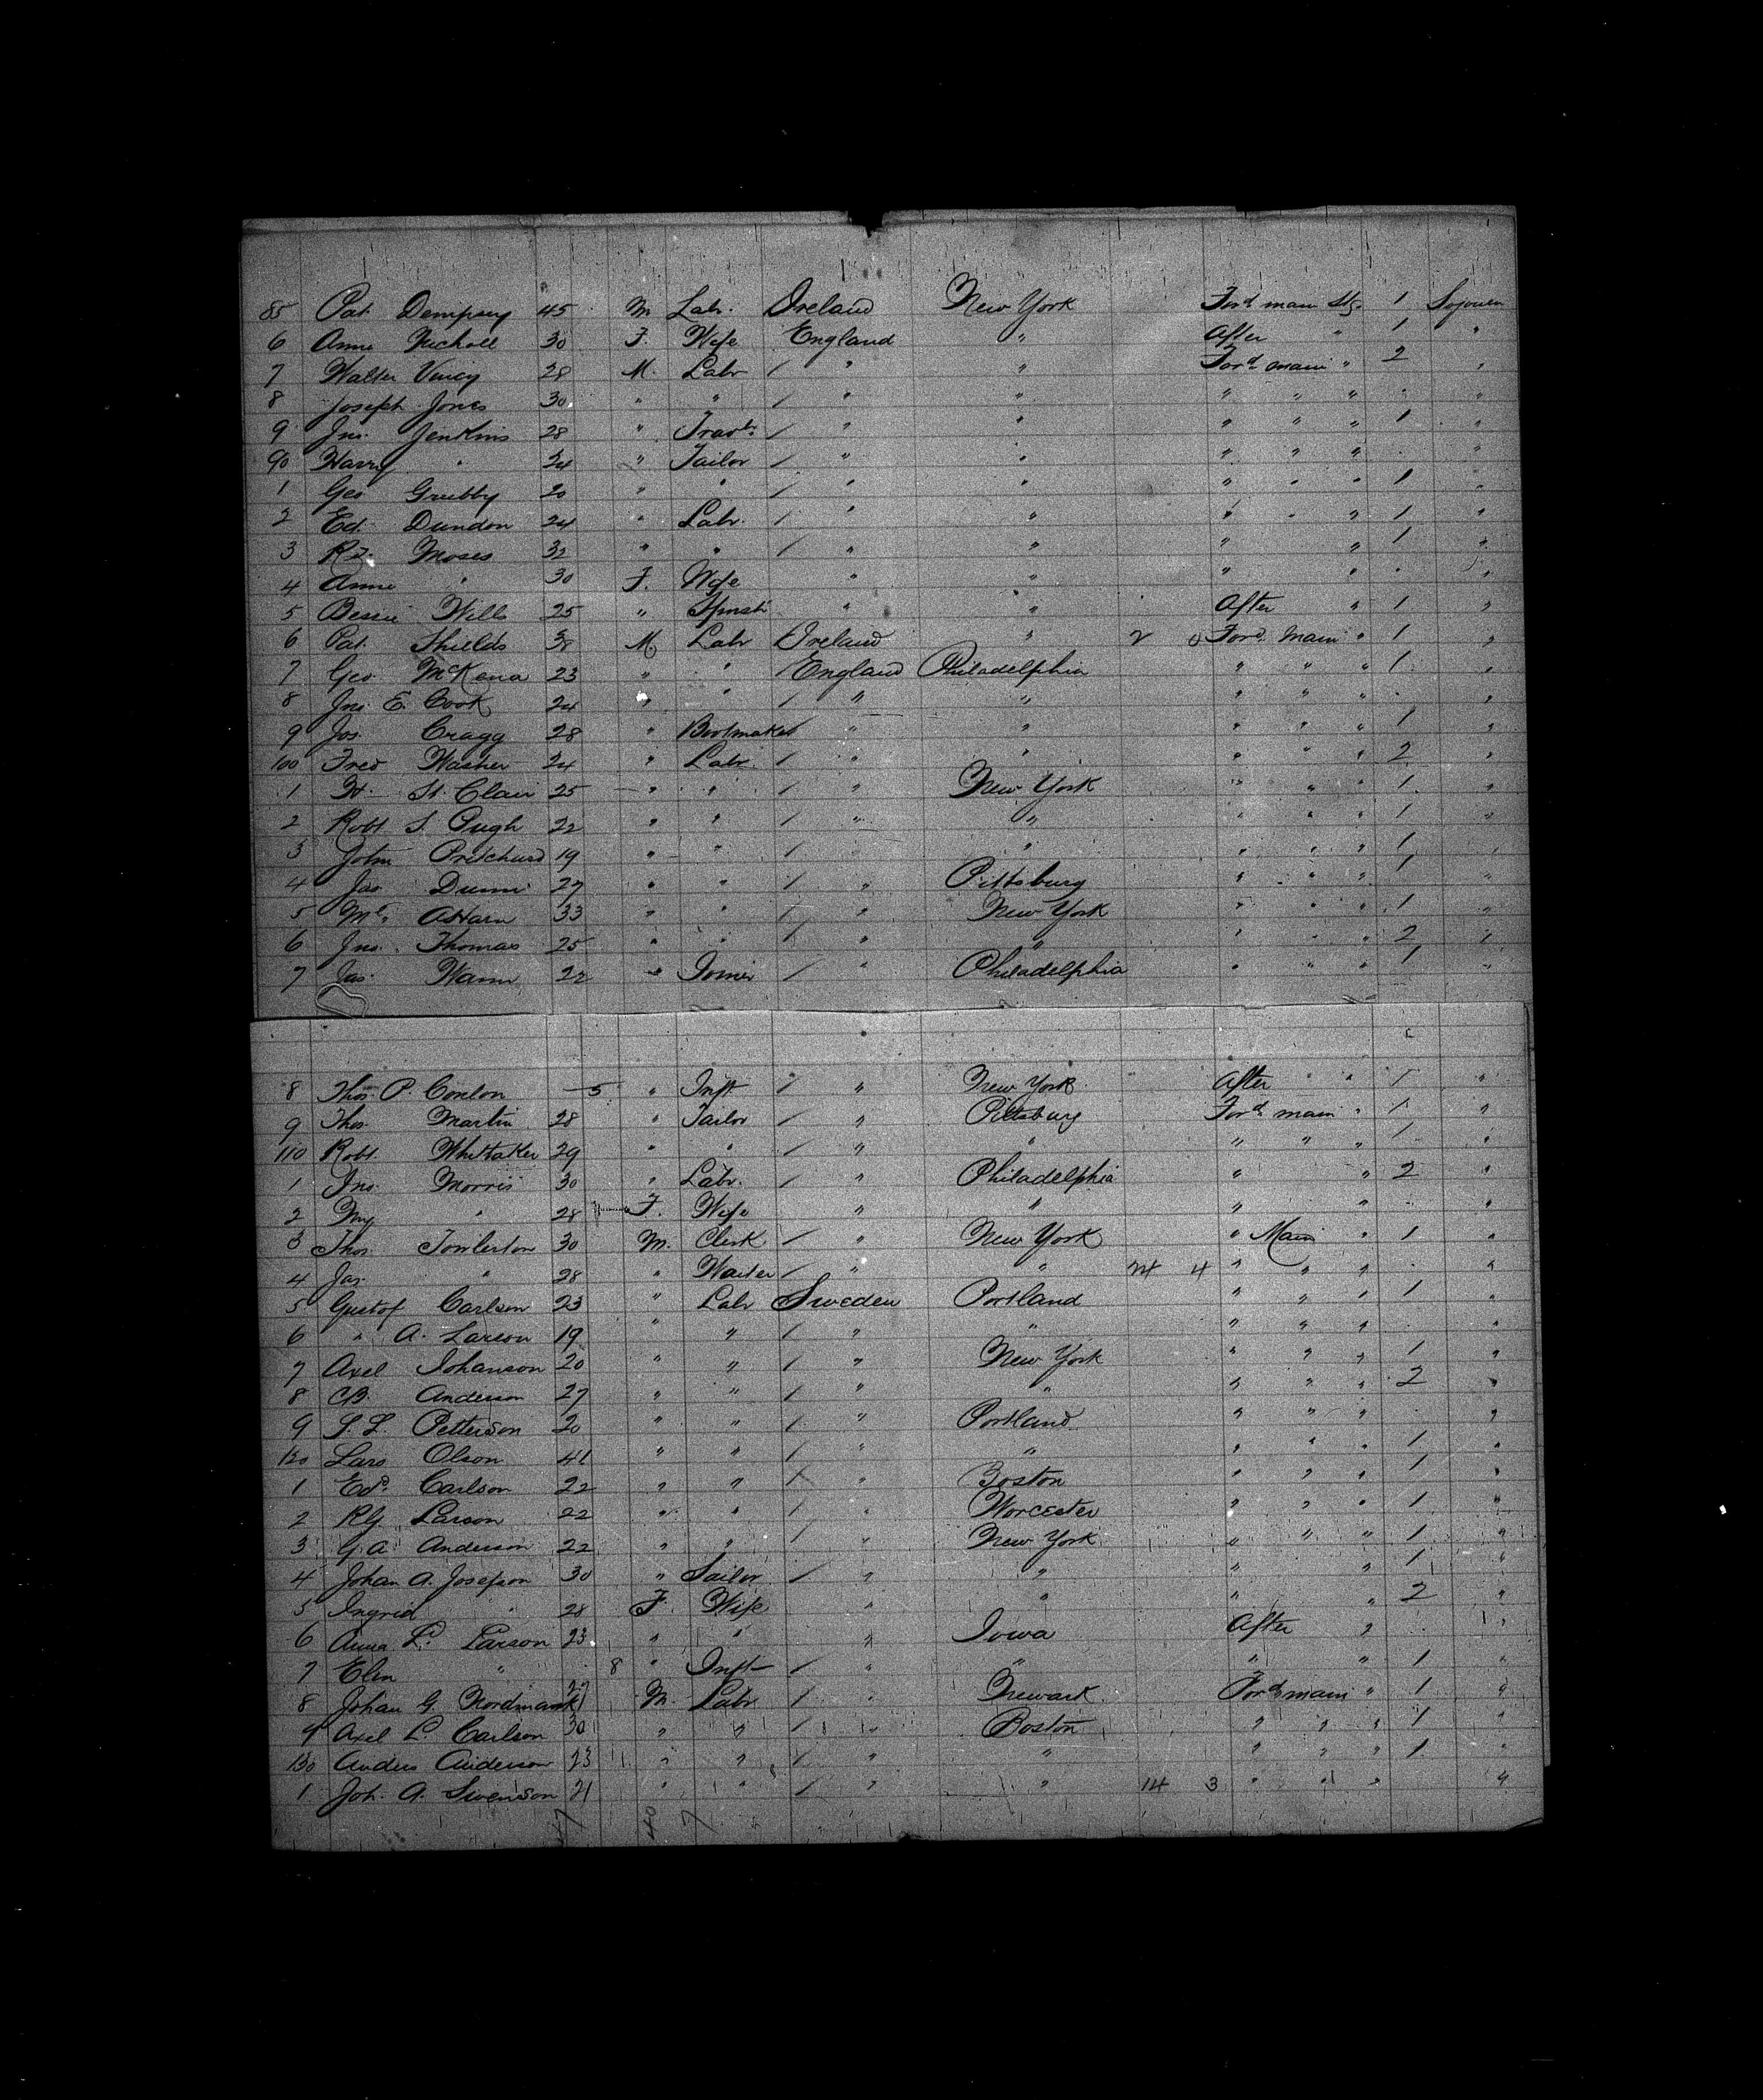 85 Pat Dempsey 45 M Labr. Ireland New York Ford main Stg. 1 Sojourn
6 Anne Nicholl 30 F. Wife England " After " 1 "
7 Walter 28 M. Labr / " " Ford main " 2 "
8 Joseph Jones 30 " " / " " " " " . "
9 Jno. Jenkins 28 " / " " " " " 1 "
90 Harry " 24 " Tailor / " " " " " . "
1 Geo Grubby 20 " " / " " " " " 1 "
2 Ed. Dundon 24 " Labr. / " " " " " 1 "
3 Moses 32 " " / " " " " 1 "
4 Anne " 30 F. Wife " " " " . "
5 Bessie Wills 25 " Spinstr " " After " 1 "
6 Pat. Shields 38 M. Labr Ireland " 2 0 Ford. Main " 1 "
7 Geo. McKena 23 " " / England Philadelphia " " " 1 "
8 Jno. E. Cook 24 " " / " " " " " . "
9 Jos. Cragg 28 " Bootmaker / " " " " " 1 "
100 Fred Washer 24 " Labr. / " " " " " 2 "
1 St. Clair 25 " " / " New York " " " 1 "
2 Robt S. Pugh 22 " " / " " " " " 1 "
3 John Pritchard 19 " " / " " " " " 1 "
4 Jas Dunn 27 " " / " Pittsburg " " " 1 "
5 33 " " / " New York " " " 1 "
6 Jno. Thomas 25 " " / " " " " " 2 "
7 Jas. Wann 22 " Joiner / " Philadelphia " " " 1 "
8 Thos. P. Conlon 5 " Inft / " New York After " " 1
9 Thos. Martin 28 " Tailor / " Pittsburg Ford main " 1 "
110 Robt. Whittaker 29 " " / " " " " " 1 "
1 Jno. Morris 30 " Labr. / " Philadelphia " " 2 "
2 My " 28 F. Wife " " " " . "
3 Thos Towlerton 30 M. Clerk / " New York " Main " 1 "
4 Jas. " 28 " Waiter / " " 24 4 " " " . "
5 Gustof Carlson 23 " Labr Sweden Portland " " " 1 "
6 " A. Larson 19 " " / " " " " " . "
7 Axel Johanson 20 " " / " New York " " " 1 "
8 C.B. Anderson 27 " " / " " " " " 2 "
9 S. L. Petterson 20 " " / " Portland " " " . "
120 Lars Olson 41 " " / " " " " " 1 "
1 Edd. Carlson 22 " " / " Boston " " " 1 "
2 R.G. Larson 22 " " / " Worcester " " " 1 "
3 G.A. Anderson 22 " " / " New York " " " 1 "
4 Johan A. Josefson 30 " Sailor / " " " " 1 "
5 Ingrid " 28 F. Wife " " " " 2 "
6 Anna L. Larson 23 " " " Iowa After " . "
7 Elin " 8 " Inft / " " " " 1 "
8 Johan G. Nordmark 27 M. Labr / " Newark Ford main " 1 "
9 Axel L. Carlson 30 " " / " Boston " " " 1 "
130 Anders Anderson 23 " " / " " " " " 1 "
1 Joh. A. Swenson 21 " " / " " 14 3 " " " "
47 40 7